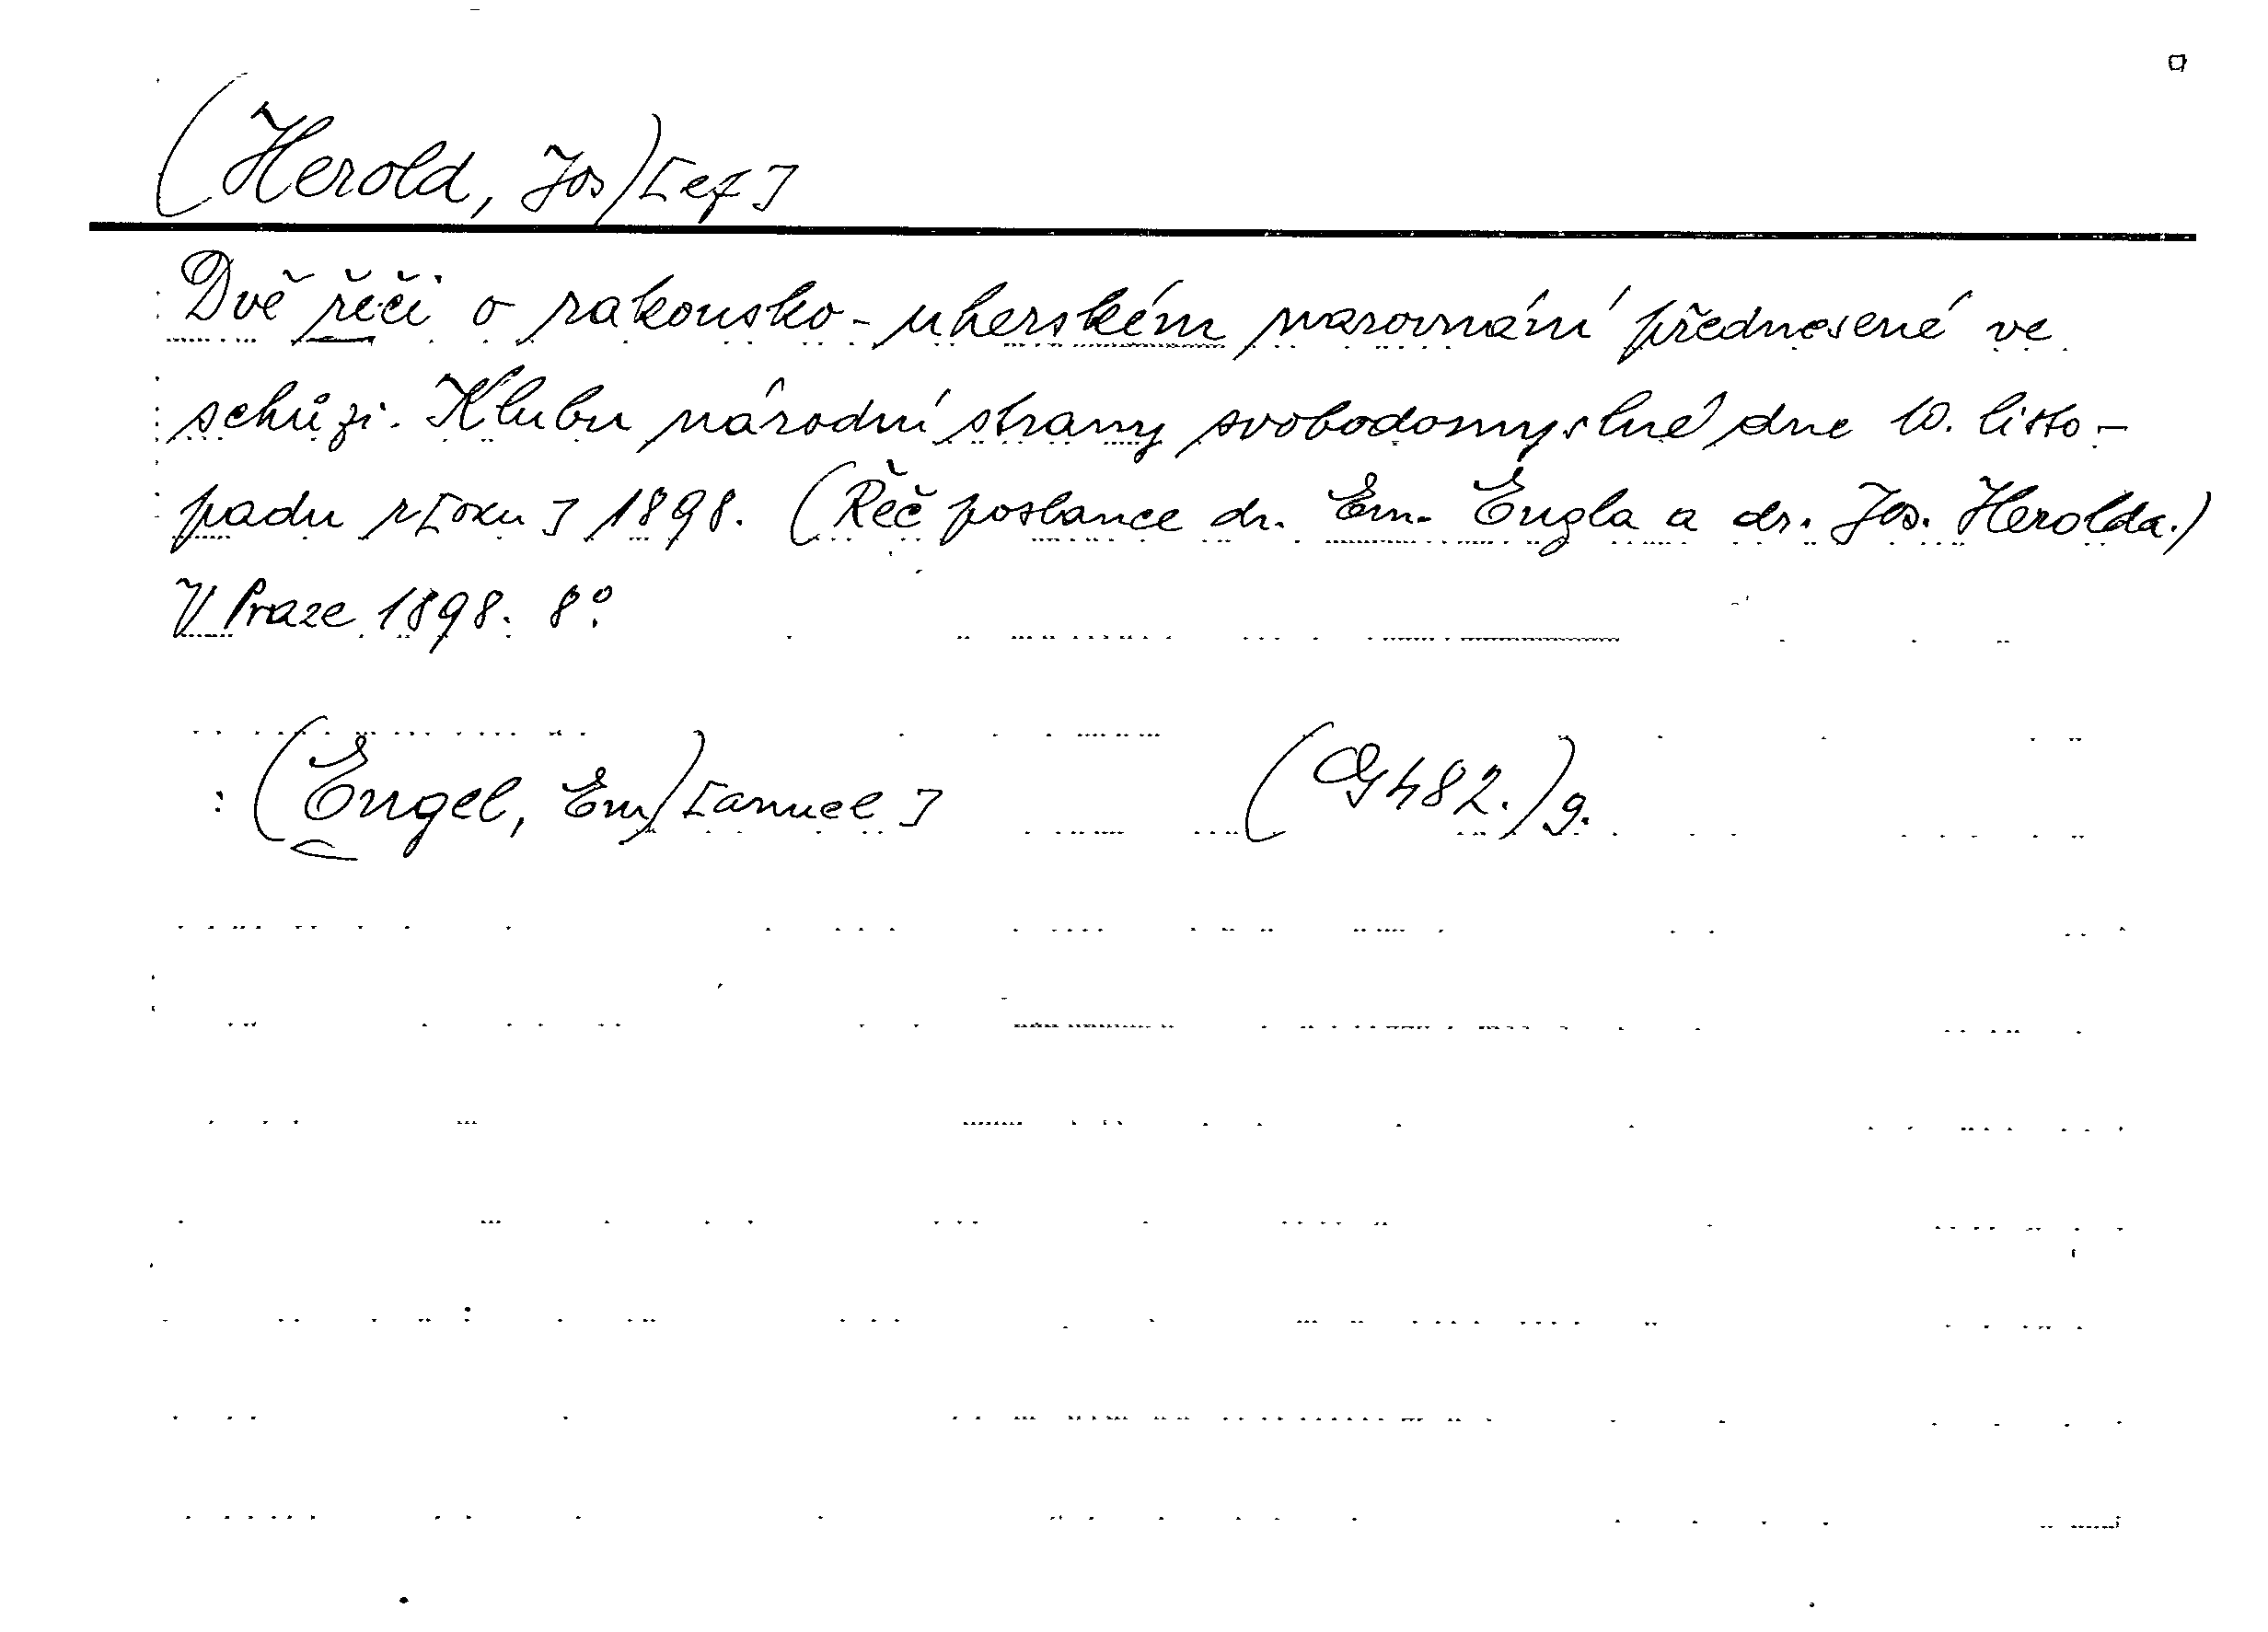 (Herold, Jos)[ef]
Dvě řeči o rakousko-uherském narovnání přednesené ve
schůzi Klubu národní strany svobodomyslné dne 10. listo-
padu r[oku] 1898. (Řeč poslance dr. Em. Engla a dr. Jos. Herolda.)
V Praze 1898. 8°.
: (Engel, Em)[anuel] (G 482.) g.